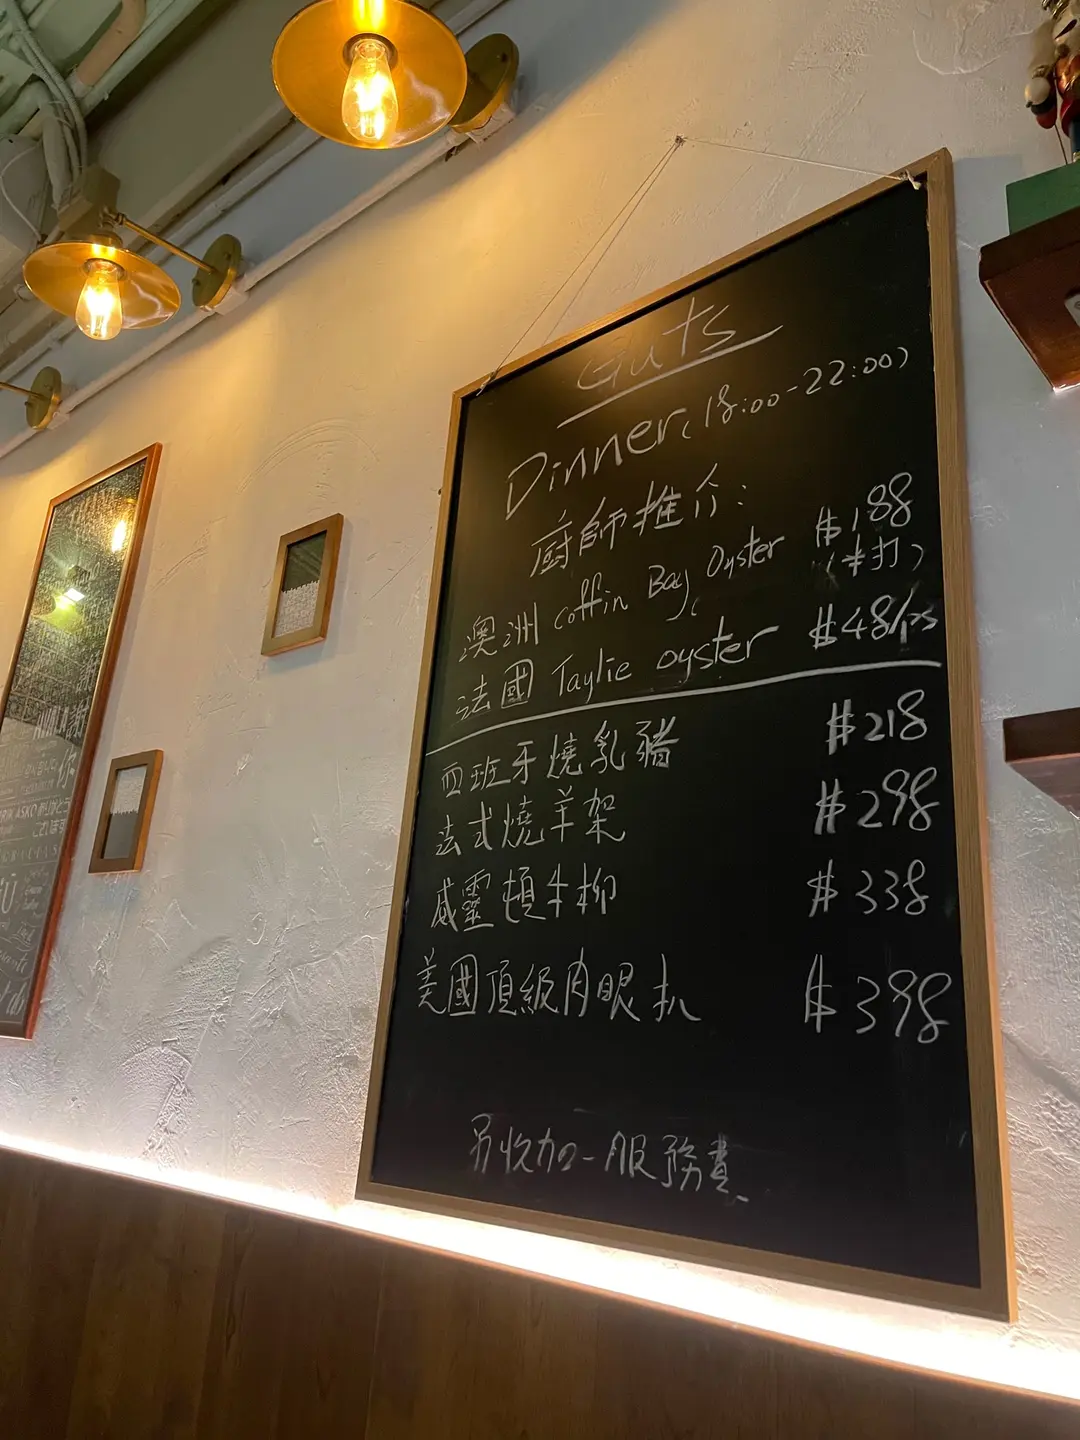 Guts
Dinner (18:00-22:00)
廚師推介:
澳洲 Coffin Bay Oyster $188
(半打)
法國 Taylie oyster $48/ps
西班牙燒乳豬 $218
法式燒羊架 $298
威靈頓牛柳 $338
美國頂級肉眼扒 $398
另收加一服務費